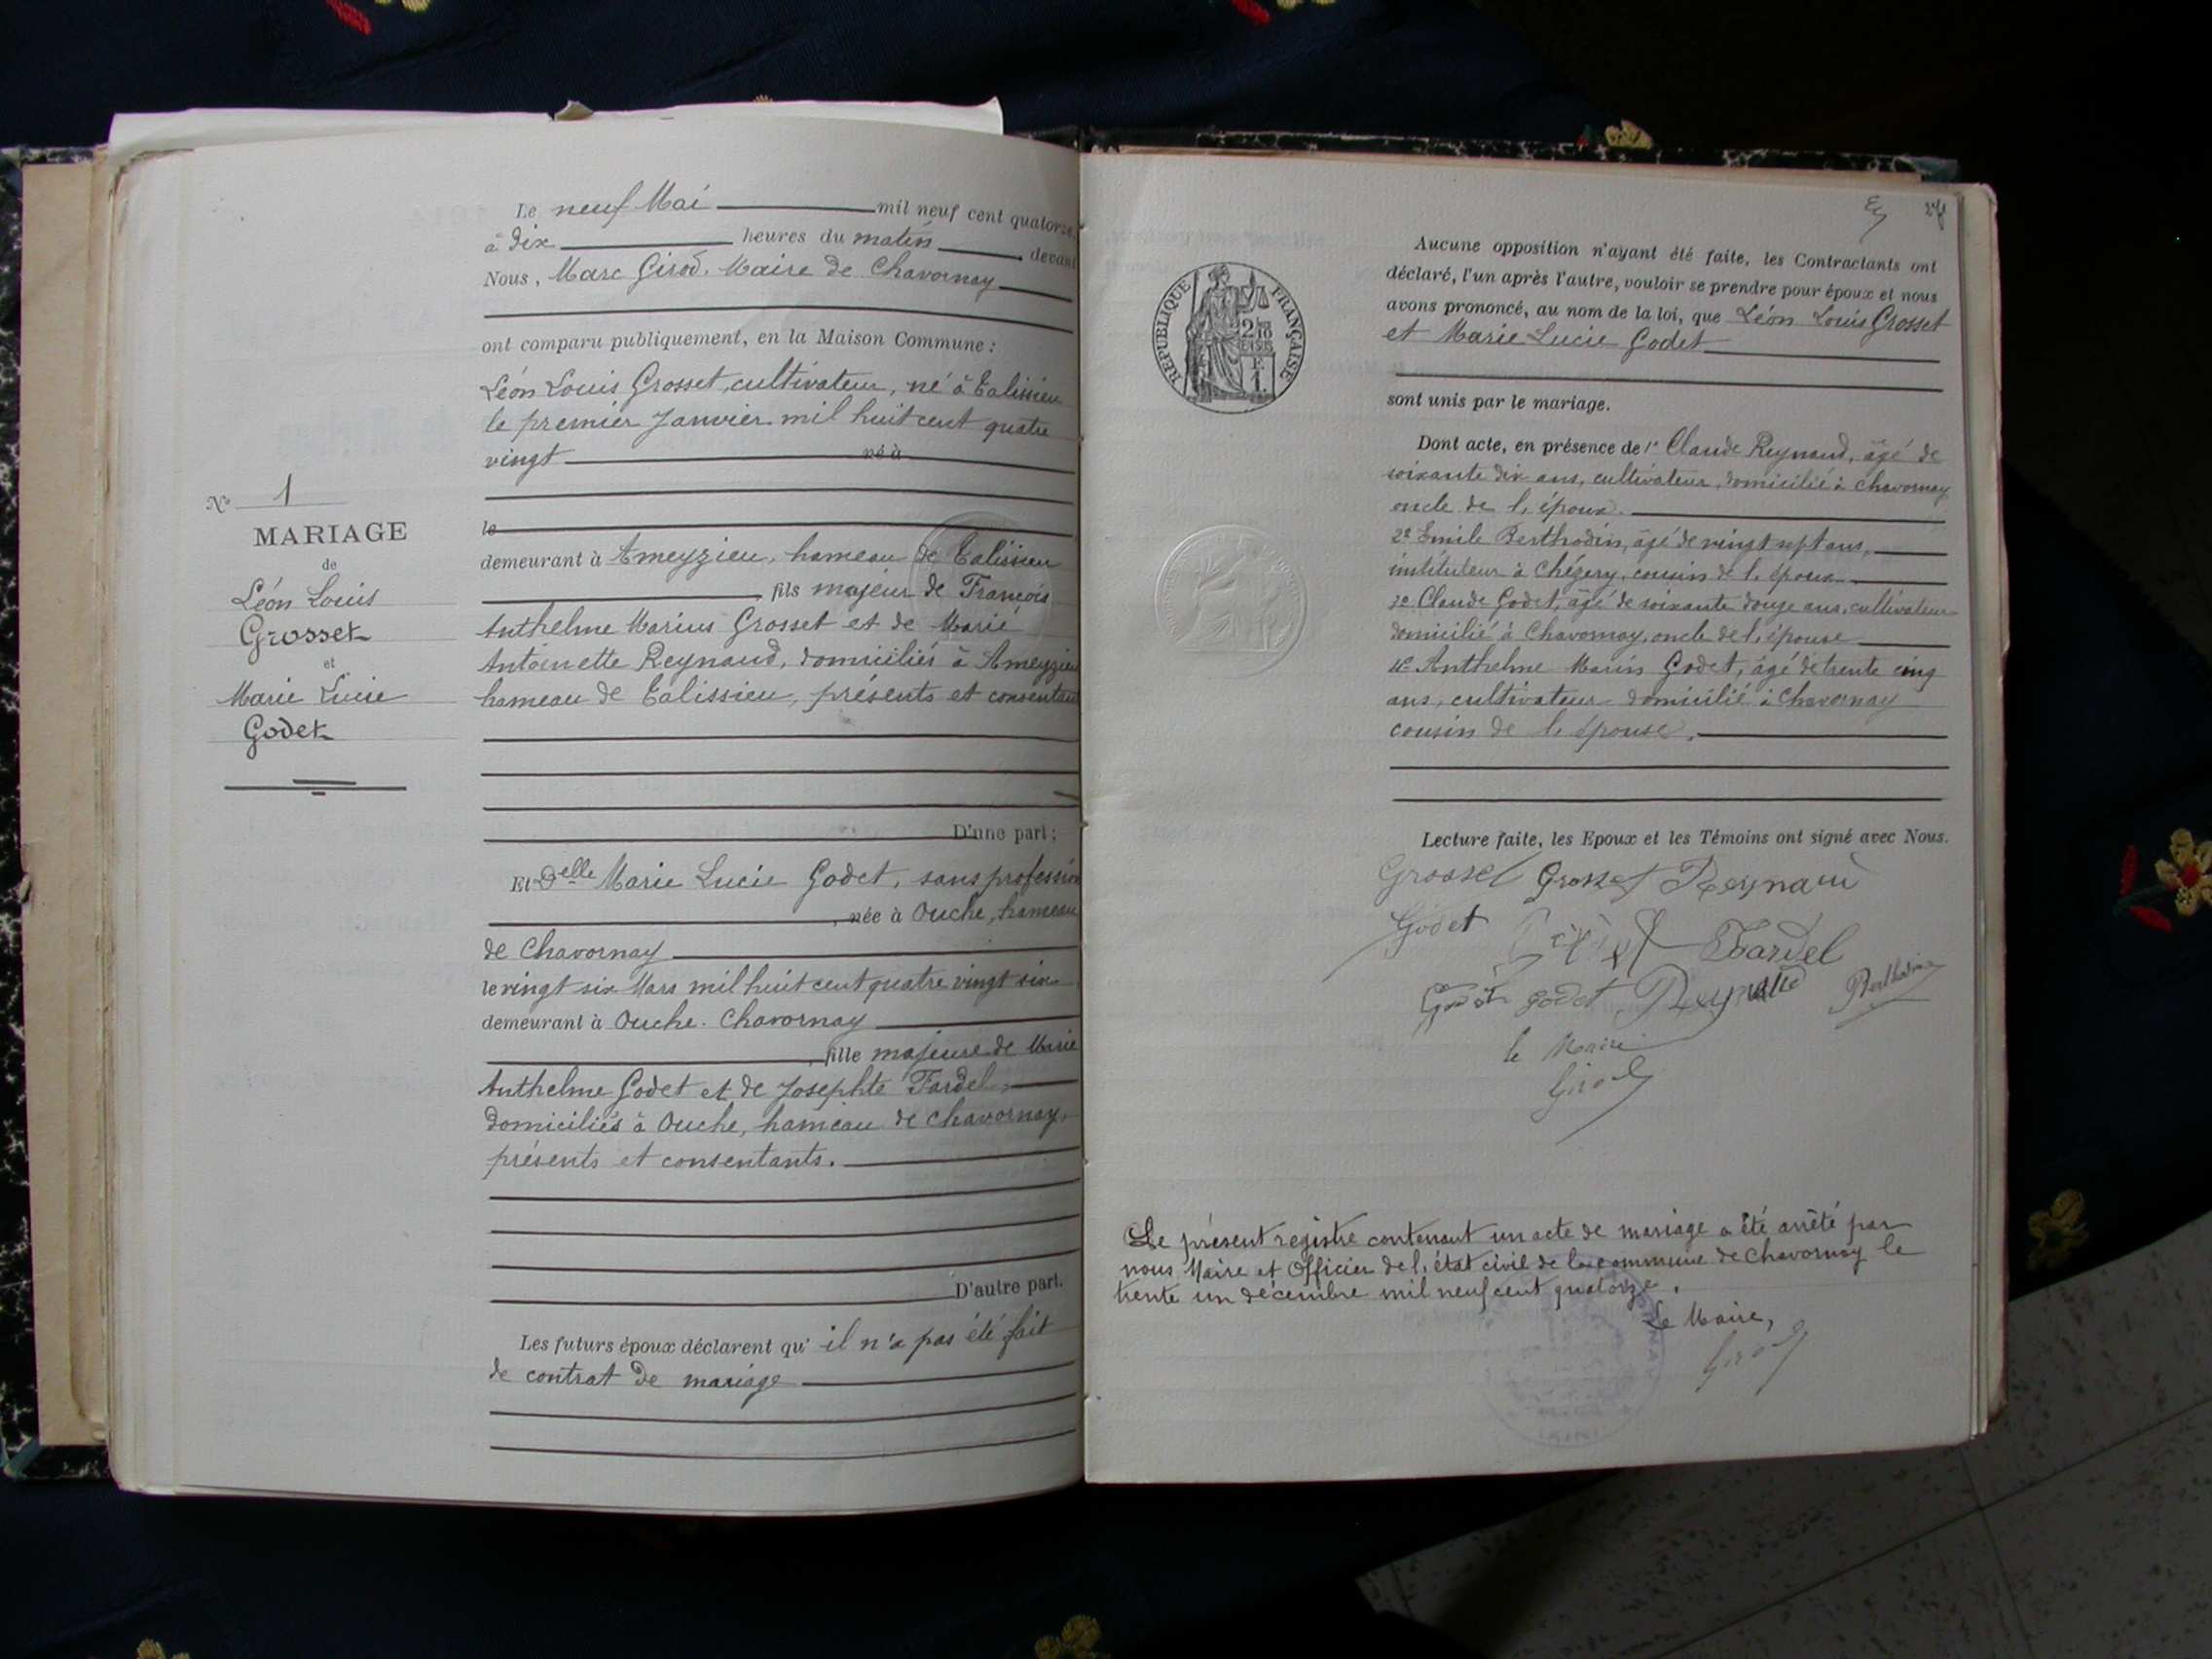 Le neuf Mai mil neuf cent quatorze,
à dix heures du matin devant
Nous, Marc Girod, Maire de Chavornay
ont comparu publiquement, en la Maison Commune :
Léon Louis Grosset, cultivateur, né à Talissieu
le premier Janvier mil huit cent quatre
vingt né à
le
demeurant à Ameyzieu, hameau de Talissieu
fils majeur de François
Anthelme Marius Grosset et de Marie
Antoinette Reynaud, domiciliés à Ameyzieu
hameau de Talissieu, présents et consentant
D'une part ;
Et Delle Marie Lucie Godet, sans profession
, née à Ouche, hameau
de Chavornay
le vingt six Mars mil huit cent quatre vingt six
demeurant à Ouche. Chavornay
, fille majeure de Marie
Anthelme Godet et de Josephte Fardel,
domiciliés à Ouche, hameau de Chavornay,
présents et consentants.
D'autre part.
Les futurs époux déclarent qu' il n'a pas été fait
de contrat de mariage
No 1
MARIAGE
de
Léon Louis
Grosset
et
Marie Lucie
Godet
Aucune opposition n'ayant été faite, les Contractants ont
déclaré, l'un après l'autre, vouloir se prendre pour époux et nous
avons prononcé, au nom de la loi, que Léon Louis Grosset
et Marie Lucie Godet
sont unis par le mariage.
Dont acte, en présence de 1° Claude Reynaud, âgé de
soixante dix ans, cultivateur, domicilié à Chavornay
oncle de l'époux.
2° Emile Berthodin, âgé de vingt sept ans,
instituteur à Chézery, cousin de l'époux
3° Claude Godet, âgé de soixante douze ans, cultivateur
domicilié à Chavornay, oncle de l'épouse
4° Anthelme Marin Godet, âgé de trente cinq
ans, cultivateur domicilié à Chavornay
cousin de l'épouse.
Lecture faite, les Epoux et les Témoins ont signé avec Nous.
Grosset Grosset Reynaud
Godet Fardel
Godet Godet Reynaud Berthodin
le Maire
Girod
Le présent registre contenant un acte de mariage a été arrêté par
nous Maire et Officier de l'état civil de la commune de Chavornay le
trente un décembre mil neuf cent quatorze.
Le Maire,
Girod
RÉPUBLIQUE FRANÇAISE